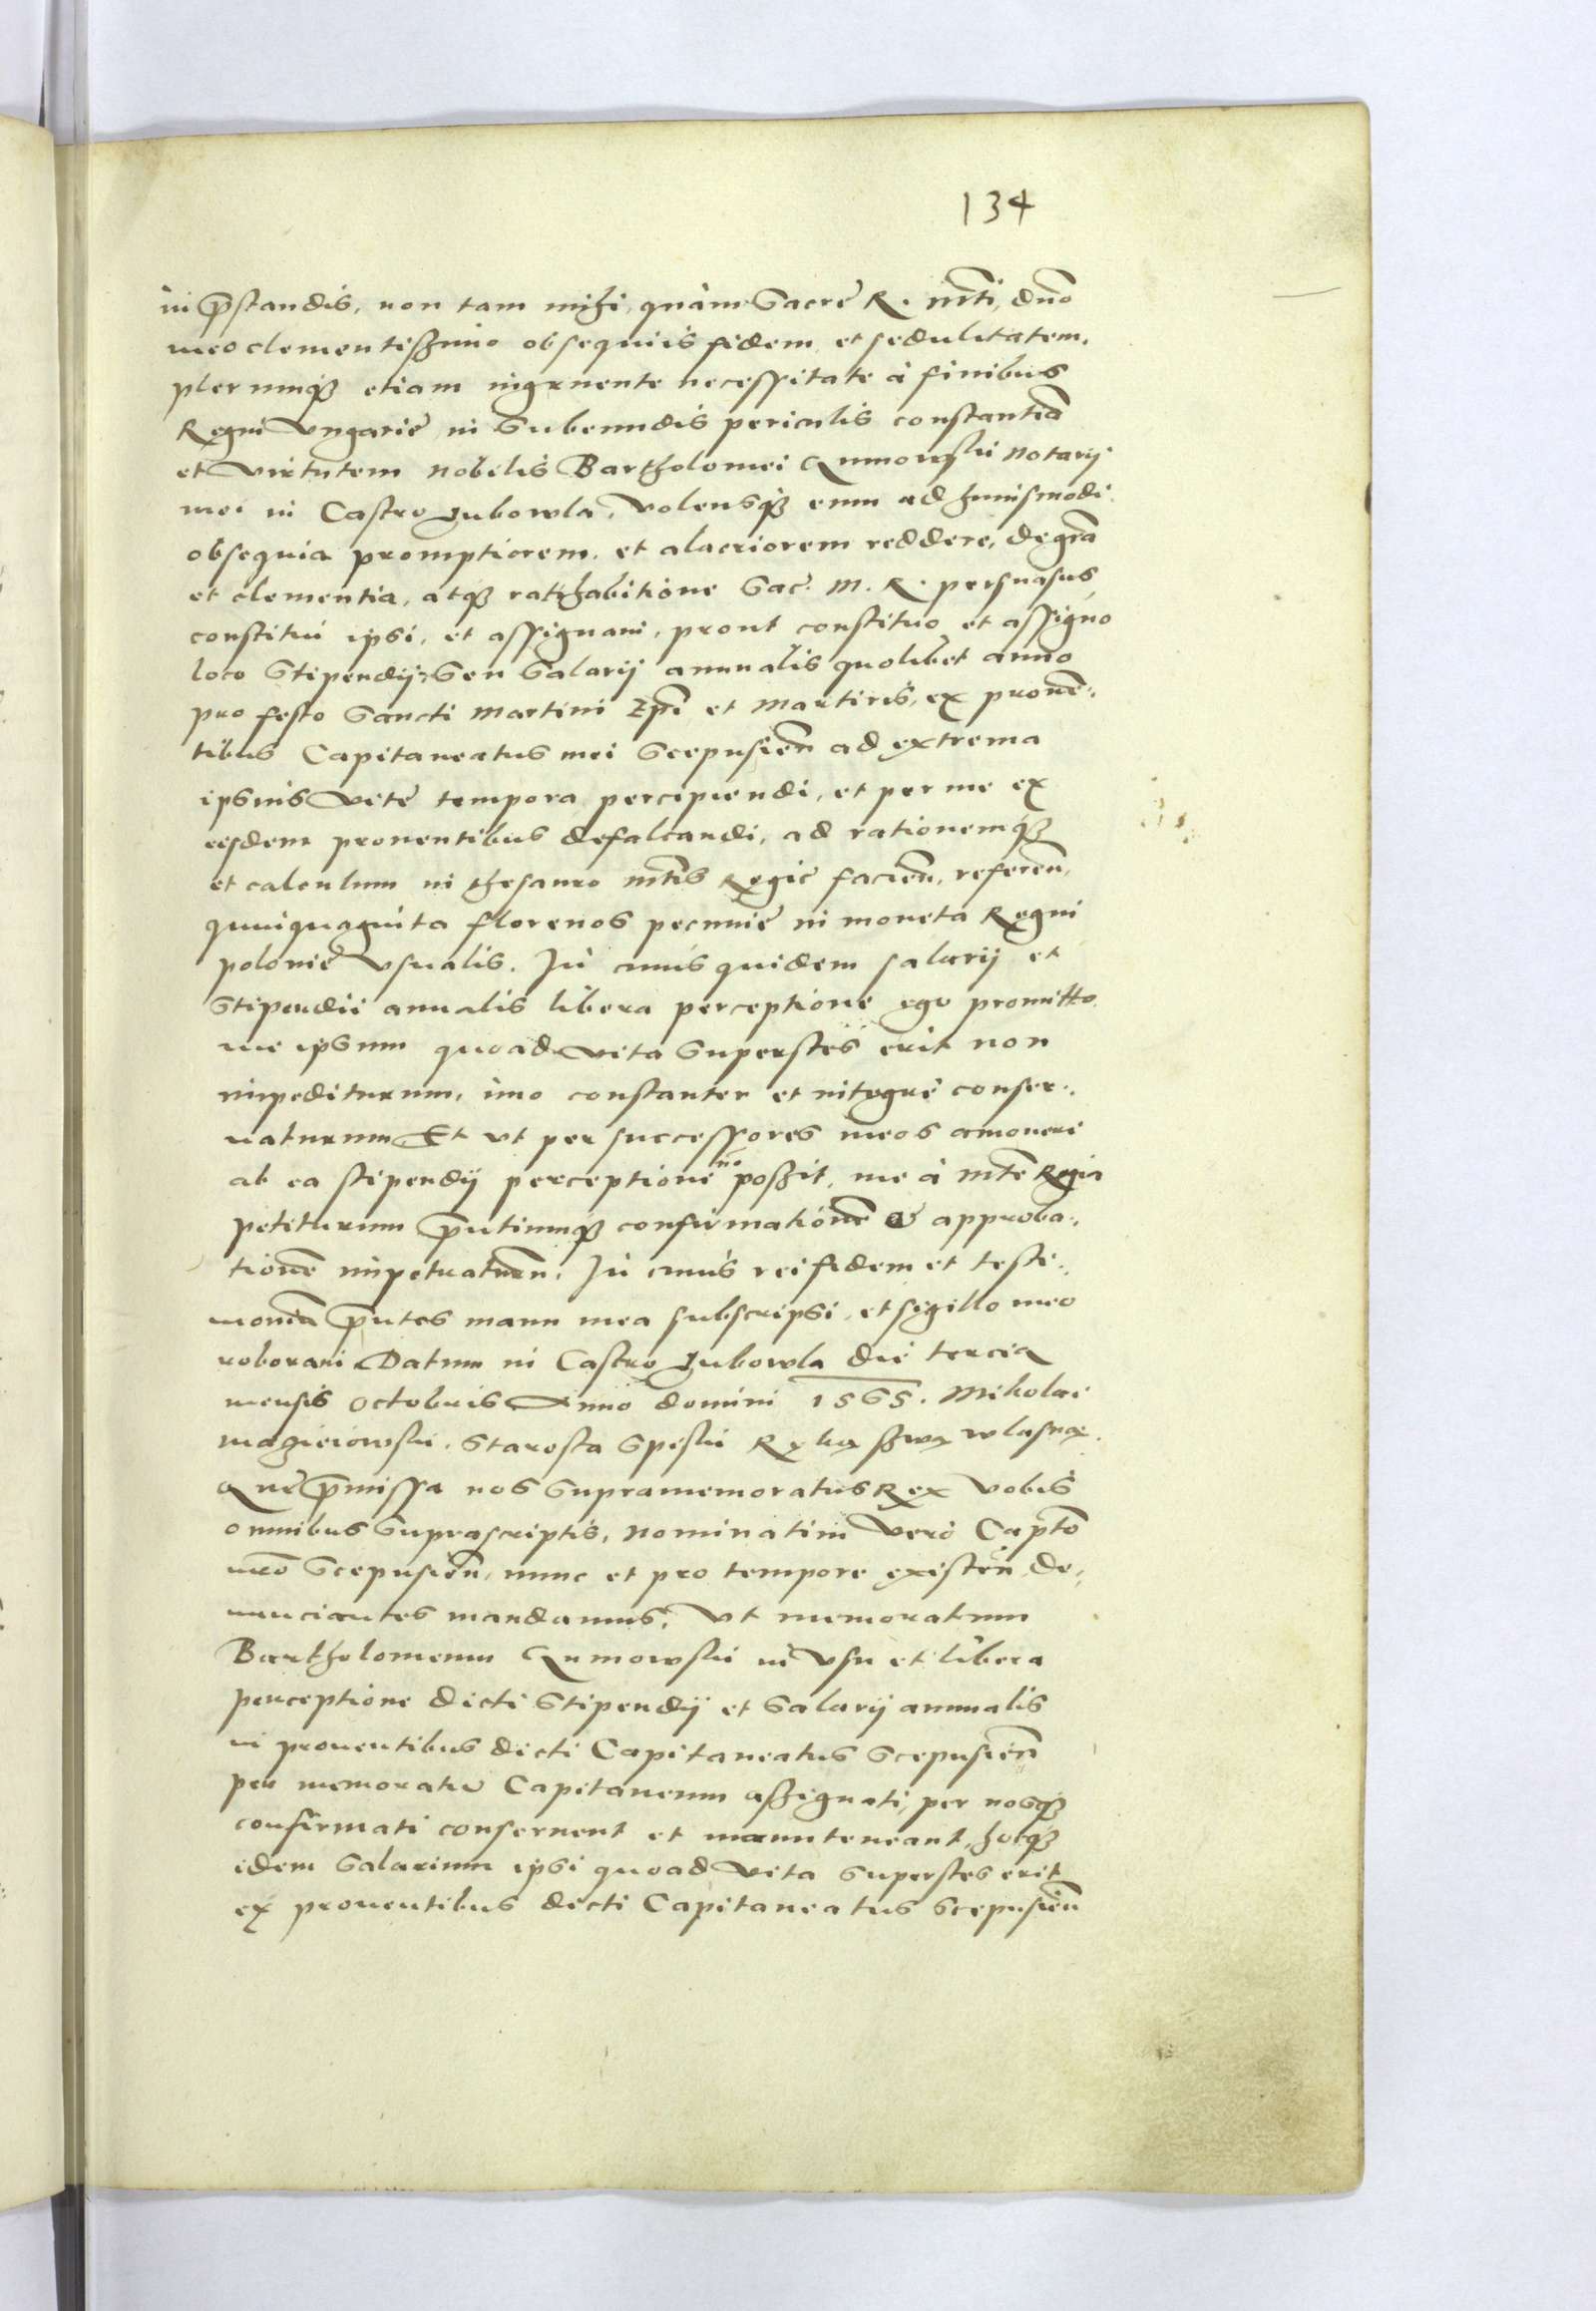 134
in p̄standis, non tam mihi, quàm Sacrę R. Mti, dn̄o
meo clementissimo obsequiis fidem et sedulitatem,
plerumqꝫ etiam ingruente necessitate à finibus
Regni Vngarię in Subeundis periculis constantiā
et virtutem nobilis Bartholomei Qumowski Notarij
mei in Castro Lubowla, Volensqꝫ eum ad huiusmodi
obsequia promptiorem, et alacriorem reddere, de grā
et clementia, atqꝫ rathabitione Sac. M. R. persuasus
constitui ipsi, et assignaui, prout constituo et assigno
loco Stipendij, Seu Salarij annualis quolibet anno
pro festo Sancti Martini Ep̄i et Martiris, ex prouē:
tibus Capitaneatus mei Scepusieñ ad extrema
ipsius vitę tempora percipiendi, et per me ex
eisdem prouentibus defalcandi, ad rationemqꝫ
et calculum in thesauro Mtis Regię facieñ, refereñ,
quinquaginta florenos pecunię in moneta Regni
polonię vsualis. In cuius quidem salarij et
Stipendii annalis libera perceptione ego promitto
me ipsum quoad vita Superstes erit non
impediturum, imo constanter et integrè conser:
uaturum Et vt per successores meos amoueri
ab ea stipendij perceptione nō possit, me à Mte Regia
petiturum p̄ntiumqꝫ confirmationē & approba:
tionē impetraturū. In cuius rei fidem et testi:
moniū p̄ntes manu mea subscripsi, et sigillo meo
roboraui Datum in Castro Lubowla die tercia
mensis Octobris Anno domini 1565. Mikolai
Macieiowski. Starosta Spiski Ręką swą wlasną.
Quę p̄missa nos Supramemoratus Rex vobis
omnibus Suprascriptis, Nominatim verò Captō
nr̄o Scepusieñ, nunc et pro tempore existeñ de,
nunciantes mandamus, Vt memoratum
Bartholomeum Qumowski in vsu et libera
perceptione dicti Stipendij et Salarij annualis
in prouentibus dicti Capitaneatus Scepusieñ
per memoratū Capitaneum assignati, per nosqꝫ
confirmati conseruent et manuteneant, hocqꝫ
idem Salarium ipsi quoad vita Superstes erit
ex prouentibus dicti Capitaneatus Scepusieñ